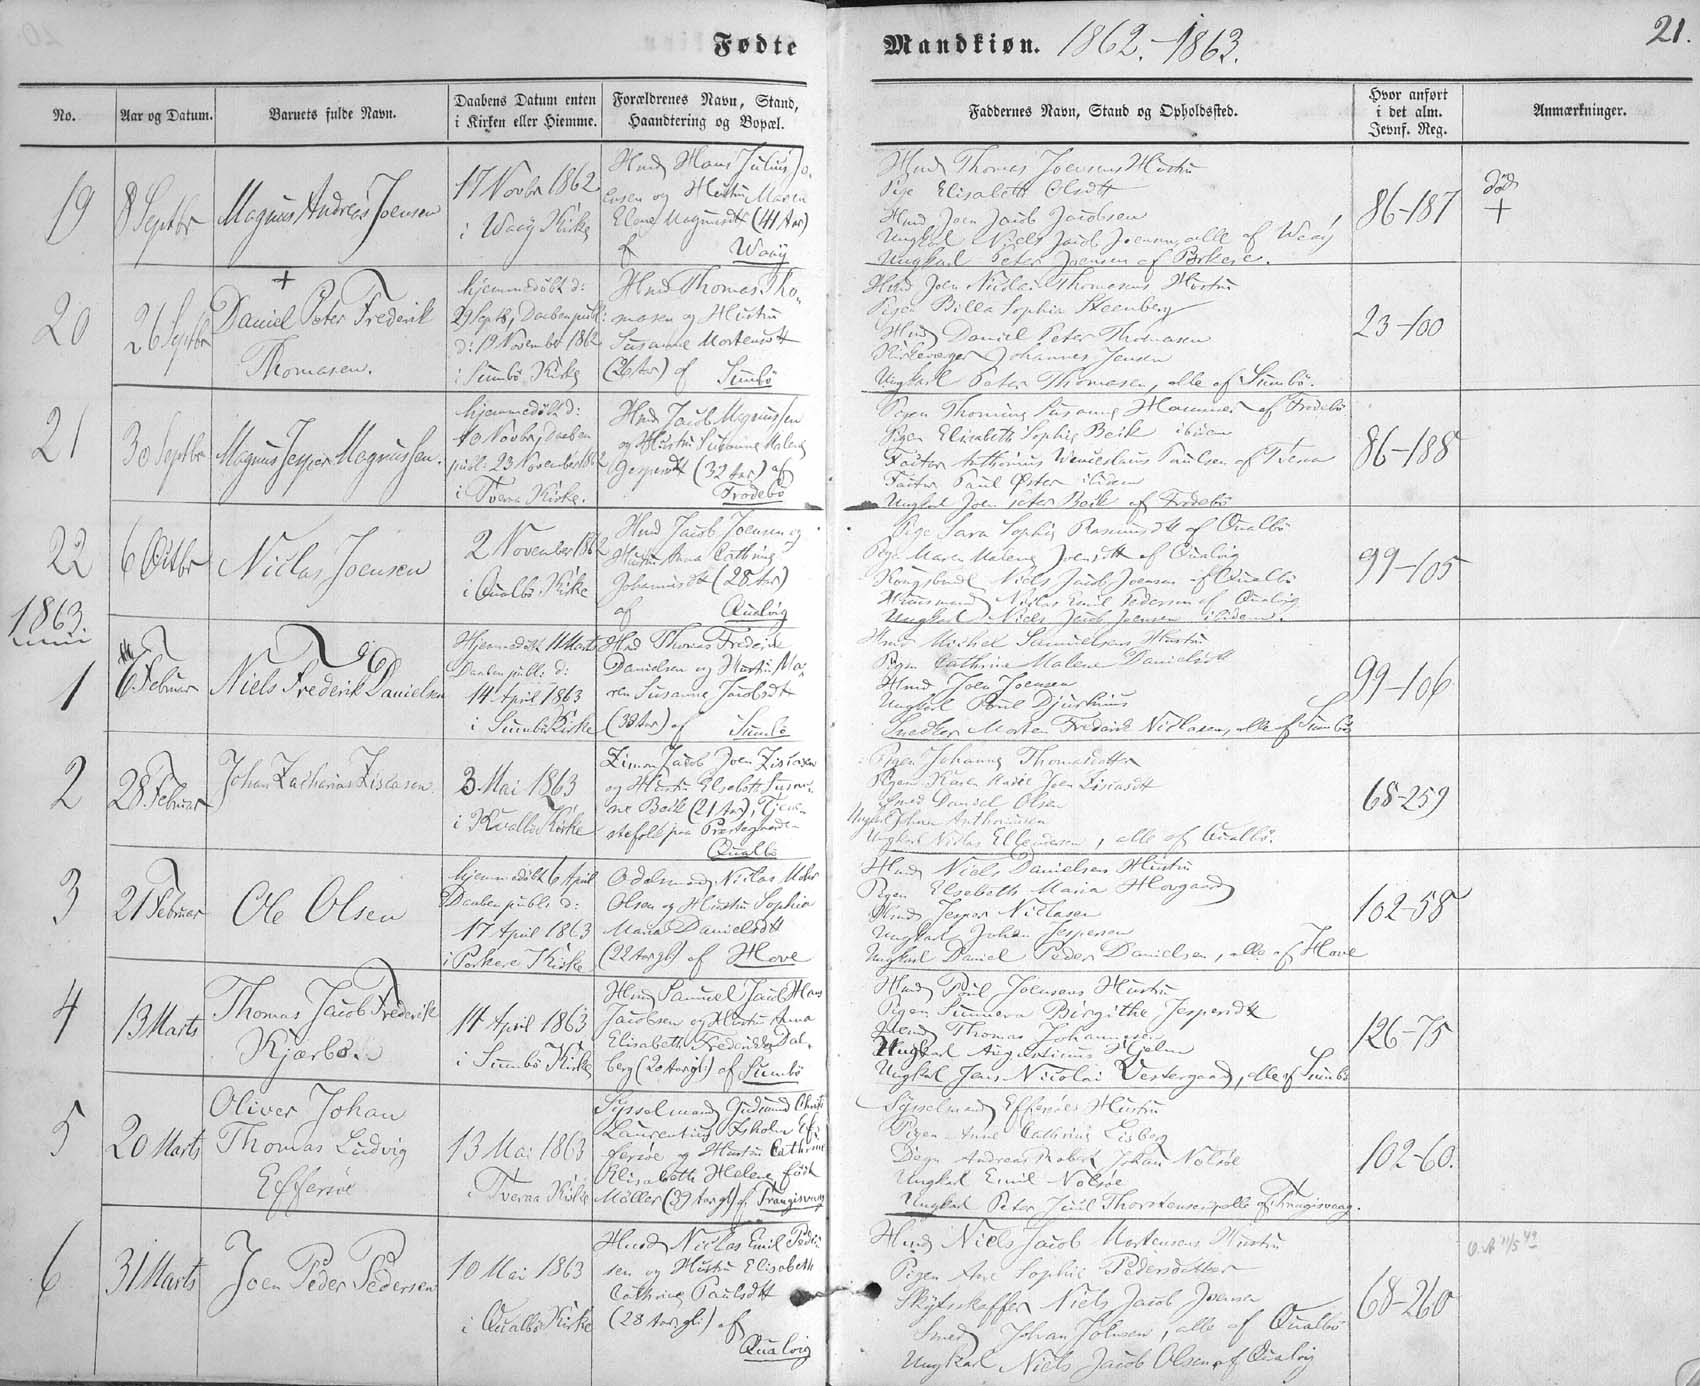 Fødte
Mandkiøn. 1862.-1863.
21.
No.
Aar og Datum.
Barnets fulde Navn.
Daabens Datum enten
i Kirken eller Hiemme.
Forældrenes Navn, Stand,
Haandtering og Bopæl.
Faddernes Navn, Stand og Opholdssted.
Hvor anført
i det alm.
Jevnf. Reg.
Anmærkninger.
19
8 Septbr
Magnus Andreas Joensen
17 Novbr 1862
i Waaÿ Kirke
Hmd Hans Julius Jo-
ensen og Hustru Maren
Magnusdtt (41 Aar)
af Waaÿ
Hmd Thomas Joensens Hustru
Pige Elisabeth Olsdtt
Hmd Joen Jacob Jacobsen
Ungkarl Niels Jacob Joensen, alle af Waaÿ
Ungkarl Peter Joensen af Porkere.
86-187
død
+
20
26 Septbr
+
Daniel Peter Frederik
Thomasen.
hjemmedøbt d:
29 Septb, Daaben publ:
d: 19 November 1862
i Sumbø Kirke
Hmd Thomas Tho-
masen og Hustru
Susanne Mortensdtt
(26 Aar) af Sumbø
Hmd Joen Nicolai Thomasens Hustru
Pigen Billa Sophia Steenberg
Hmd Daniel Peter Thomasen
Kirkeværger Johannes Jensen
Ungkarl Peter Thomasen, alle af Sumbø.
23-100
21
30 Septbr
Magnus Jesper Magnussen.
hjemmedøbt d:
10 Novbr, Daaben
publ. 23 November 1862
i Tverra Kirke.
Hmd Jacob Magnussen
og Hustru Susanne Malene
Jespersdtt (32 Aar) af
Frodebø
Pigen Susanne Hammer af Frodebø
Pigen Elisabeth Sophie Beik ibidem
Factor Anthonius Wenceslaus Paulsen af Tverra
Factor Paul Øster ibidem
Ungkarl Joen Peter Beik af Frodebø
86-188
22
6 Octbr
Niclas Joensen
2 November 1862
i Qualbø Kirke
Hmd Jacob Joensen og
Hustru Anna Cathrine
Johannisdtt (28 Aar)
af Qualvig
Pige Sara Sophie Rasmusdtt af Qualbø
Pige Maren Malene Joensdtt af Qualvig
Kongsbonde Niels Jacob Joensen af Qualbø
Huusmand Niclas Emil Pedersen af Qualvig
Ungkarl Niels Jacob Joensen ibidem.
99-105
1863
1
6 Februar
Niels Frederik Danielsen
Hjemmedøbt 11 Marts
Daaben publ. d:
14 April 1863
i Sumbø Kirke
Hmd Thomas Frederik
Danielsen og Hustru Ma-
ren Susanne Jacobsdtt
(38 Aar) af Sumbø
Hmd Michel Samuelsens Hustru
Pigen Cathrine Malene Danielsdtt
Hmd Joen Joensen
Ungkarl Poul Djurhuus
Snedker Morten Frederik Niclasen, alle af Sumbø
99-106
2
28 Februar
Johan Zacharias Ziscasen
3 Mai 1863
i Kvalbø Kirke
Jacob Joen Ziscasen
og Hustru Elsebeth Susan-
ne Beik (21 Aar), Tjene-
stefolk paa Præstegaarden
Qualbø
Pigen Johanne Thomasdatter
Pigen Karen Marie Joen Ziscasdtt
Smed Daniel Olsen
Ungkarl Johan Anthoniussen
Ungkarl Niclas Ellendersen, alle af Qualbø.
68-259
3
21 Februar
Ole Olsen
hjemmedøbt 6 April
Daaben publ. d:
17 April 1863
i Porkere Kirke
Odelsmand Niclas
Olsen og Hustru Sophia
Maria Danielsdtt
(22 Aar gl) af Hove
Hmd Niels Danielsens Hustru
Pigen Elsebeth Maria Hovgaard
Hmd Jesper Niclasen
Ungkarl Johan Jespersen
Ungkarl Daniel Peder Danielsen, alle af Hove
102-58
4
13 Marts
Thomas Jacob Frederik
Kjærbo
14 April 1863
i Sumbø Kirke
Hmd Samuel Jacob Hans
Jacobsen og Hustru Anna
Elisabeth Frederikke Dal-
berg (20 Aar gl:) af Sumbø
Hmd Poul Joensens Hustru
Pigen Sunneva Birgithe Jespersdtt
Hmd Thomas Johannisen
Ungkarl Augustinus Hjelm
Ungkarl Jens Nicolai Vestergaard, alle af Sumbø
126-75
5
20 Marts
Oliver Johan
Thomas Ludvig
Effersøe
13 Mai 1863
i Tveraa Kirke
Sysselmand Gudmund Christi
Laurentius Isholm Ef-
fersøe og Hustru Cathrine
Elisabeth Helene født
Müller (39 Aar gl) af Trangisvaag
Sysselmand Effersøes Hustru
Pigen Anne Cathrine Lisberg
Degn Andreas Robert Johan Nolsøe
Ungkarl Emil Nolsøe
Ungkarl Peter Juul Thorstensen, alle af Trangisvaag.
102-60.
6
31 Marts
Joen Peder Pedersen
10 Mai 1863
i Qualbø Kirke
Hmd Niclas Emil Peder-
sen og Hustru Elisabeth
Cathrine Paulsdtt
(28 Aar gl:) af
Qualvig
Hmd Niels Jacob Mortensens Hustru
Pigen Ane Sophie Pedersdatter
Skydsskaffer Niels Jacob Joensen
Smed Johan Johnsen, alle af Qualbø
Ungkarl Niels Jacob Olsen af Qualvig
68-260